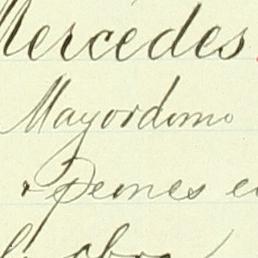 Mercedes
Mayordomo
peones e